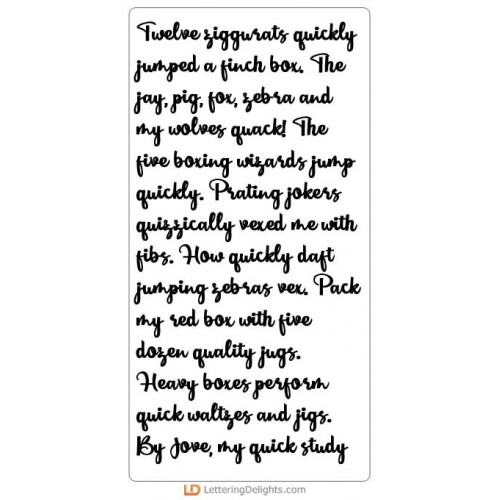 Twelve ziggurats quickly
jumped a finch box. The
jay, pig, fox, zebra and
my wolves quack! The
five boxing wizards jump
quickly. Prating jokers
quizzically vexed me with
fibs. How quickly daft
jumping zebras vex. Pack
my red box with five
dozen quality jugs.
Heavy boxes perform
quick waltzes and jigs.
By Jove, my quick study
LD LetteringDelights.com